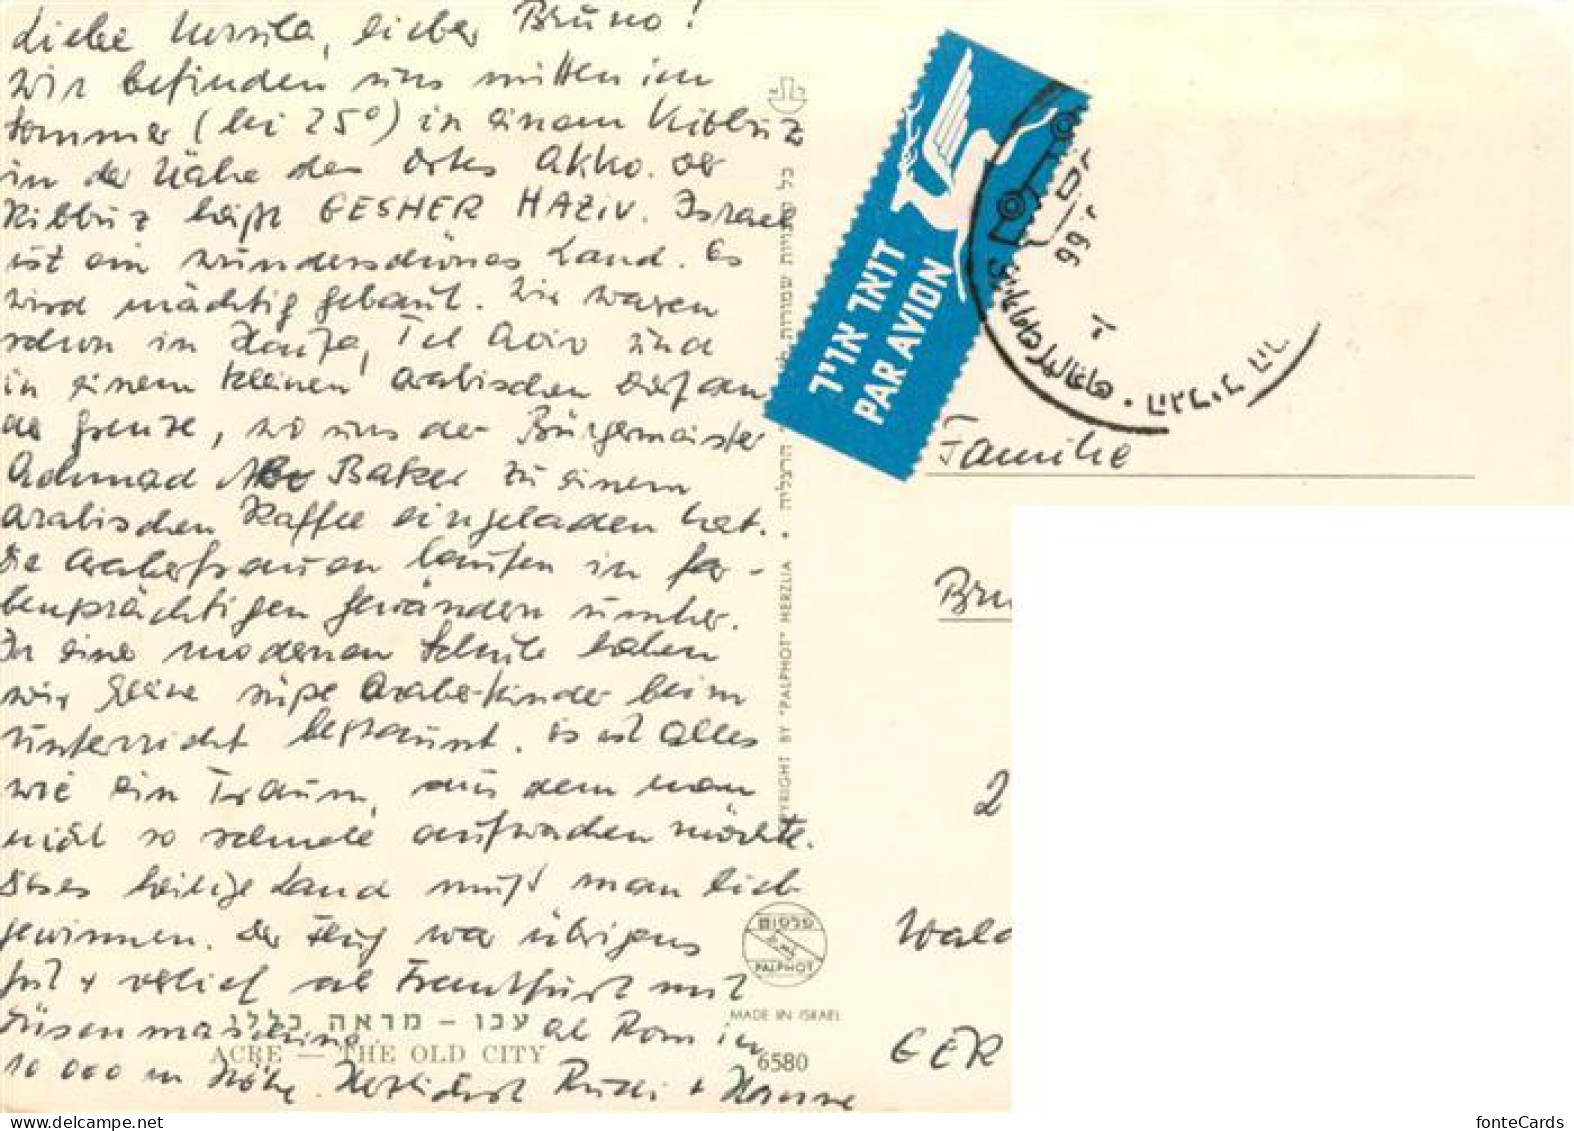 Liebe Ursula, lieber Bruno!
Wir befinden uns mitten im
Sommer (bei 25°) in einem Kibbuz
in der Nähe des Ortes Akko. Der
Kibbuz heißt GESHER HAZIV. Israel
ist ein wunderschönes Land. Es
wird mächtig gebaut. Wir waren
schon in Haifa, Tel Aviv und
in einem kleinen arabischen Dorf an
der Grenze, wo uns der Bürgermeister
Achmad Baker zu einem
arabischen Kaffee eingeladen hat.
Die Araberfrauen laufen in far-
benprächtigen Gewändern umher.
In einer modernen Schule haben
wir kleine süße Araberkinder beim
Unterricht bestaunt. Es ist alles
wie ein Traum, aus dem man
nicht so schnell aufwachen möchte.
Dieses heilige Land muß man lieb-
gewinnen. Der Flug war übrigens
gut + verlief ab Frankfurt mit
Düsenmaschine ab Rom in
10 000 m Höhe. Herzlichst Rudi + Hanne
עכו – מראה כללי
ACRE — THE OLD CITY
COPYRIGHT BY "PALPHOT" HERZLIA • הרצליה
כל הזכויות שמורות
פלפוט
PALPHOT
MADE IN ISRAEL
6580
דואר אויר
PAR AVION
66
Familie
Bru
2
Wald
GER
fonteCards